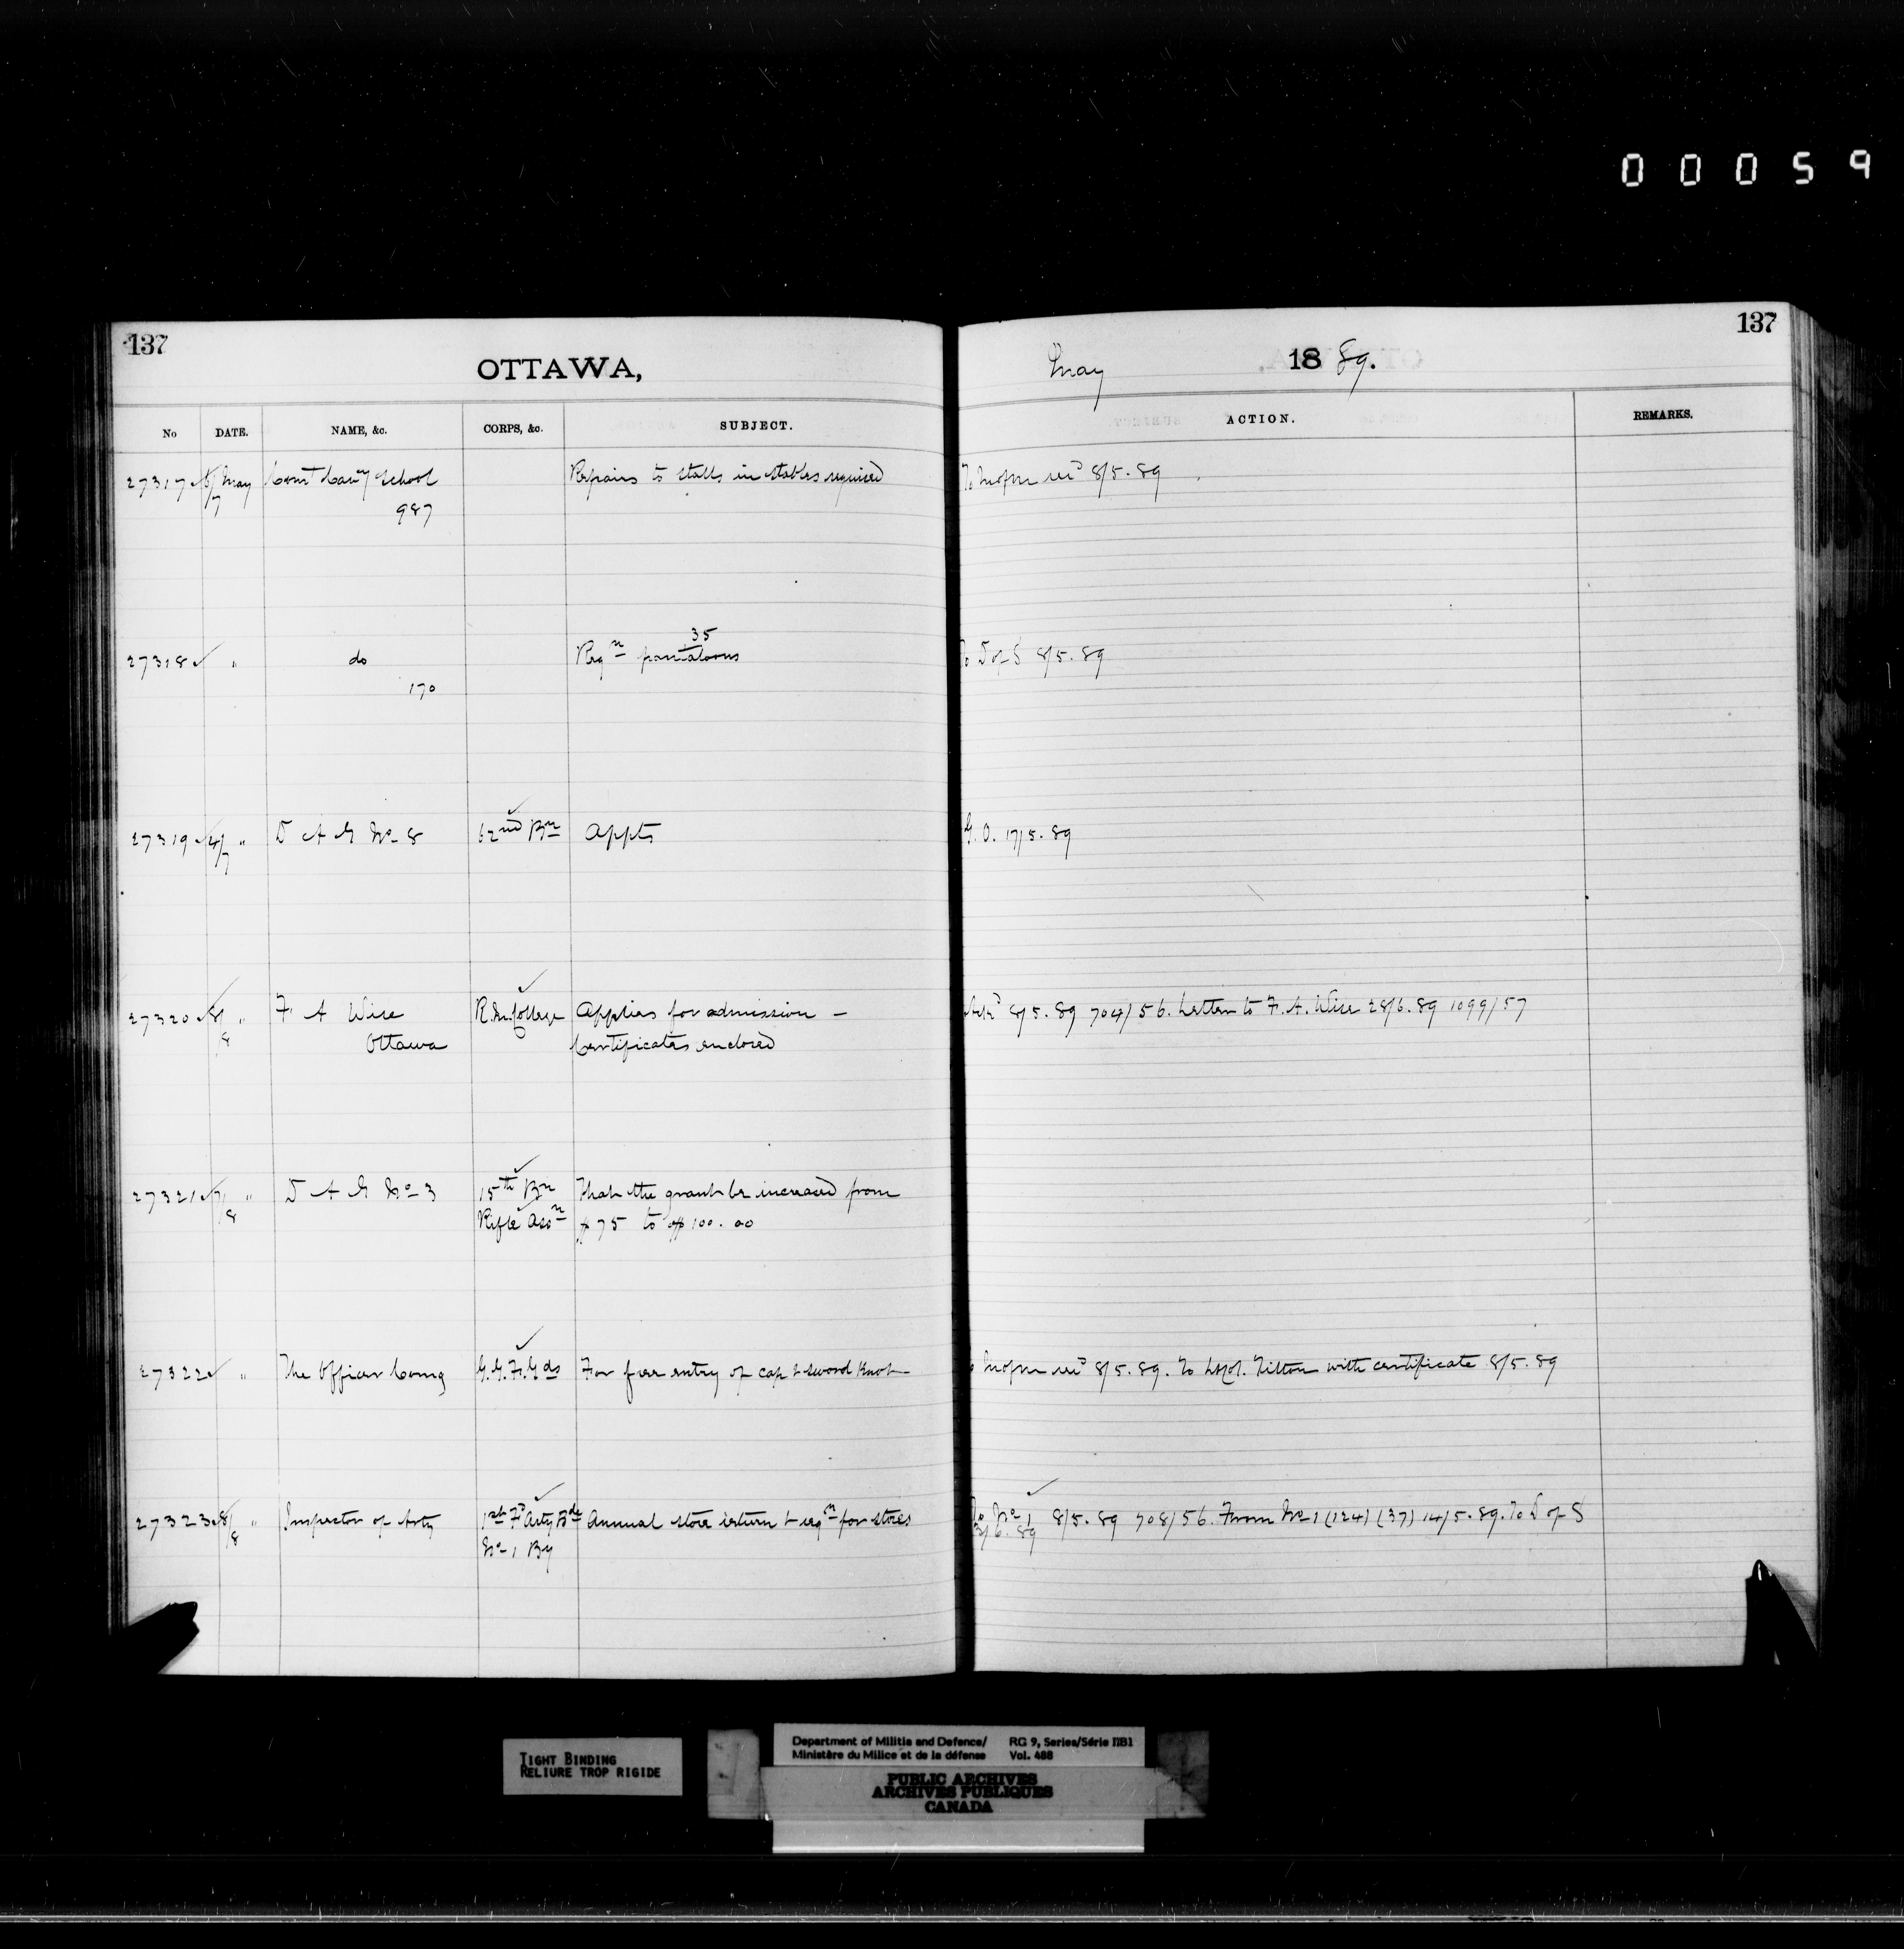 00059
137
OTTAWA,
May 1889.
137
No DATE. NAME, &c. CORPS, &c. SUBJECT. ACTION. REMARKS.
27317 6/7 May Comt Cavy School Repairs to stalls in stables required To M of M &D 8/5.89
987
35
27318 " do Reqn pantaloons To D of S 8/5.89
170
27319 4/7 " D A G No 8 62nd Bn Appts G.O. 17/5.89
27320 8/8 " F A Wise R.M.College Applies for admission – Ackd 8/5.89 704/56. Letter to F.A. Wise 28/6.89 1099/57
Ottawa Certificates enclosed
27321 7/8 " D A G No 3 15th Bn That the grant be increased from
Rifle Asson $75 to $100.00
27322 " The Officer Comg G.G.F.Gds For free entry of cap & sword knot 8/5.89. To Lt Col. Tilton with certificate 8/5.89
27323 8/8 " Inspector of Arty 1st Fd Arty Bde Annual store return & reqn for stores To No 1 8/5.89 708/56. From No 1 (124) (37) 14/5.89. To D of S
No 1 By 3/6.89
TIGHT BINDING
RELIURE TROP RIGIDE
Department of Militia and Defence/ RG 9, Series/Série IIB1
Ministère du Milice et de la défense Vol. 488
PUBLIC ARCHIVES
ARCHIVES PUBLIQUES
CANADA